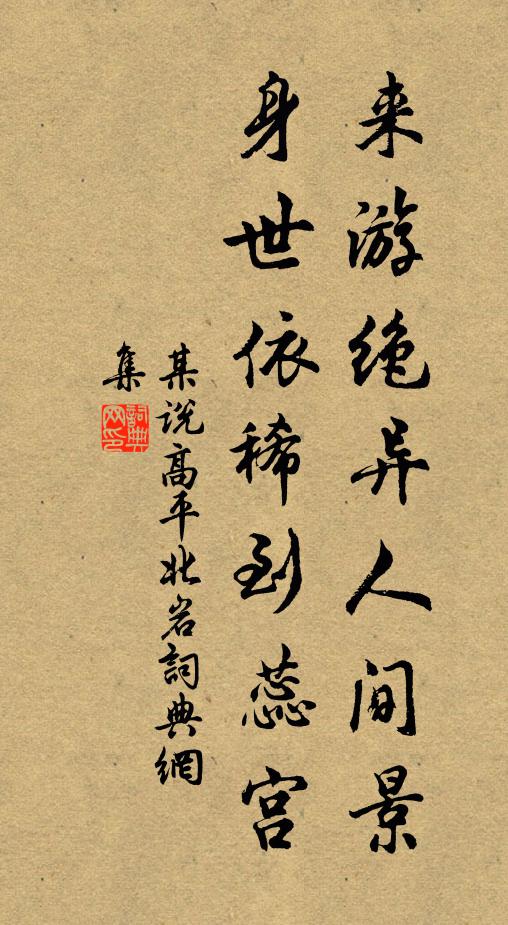 来游绝异人间景
身世依稀到蕊宫
某说高平北岩詞典網
集
詞典网印